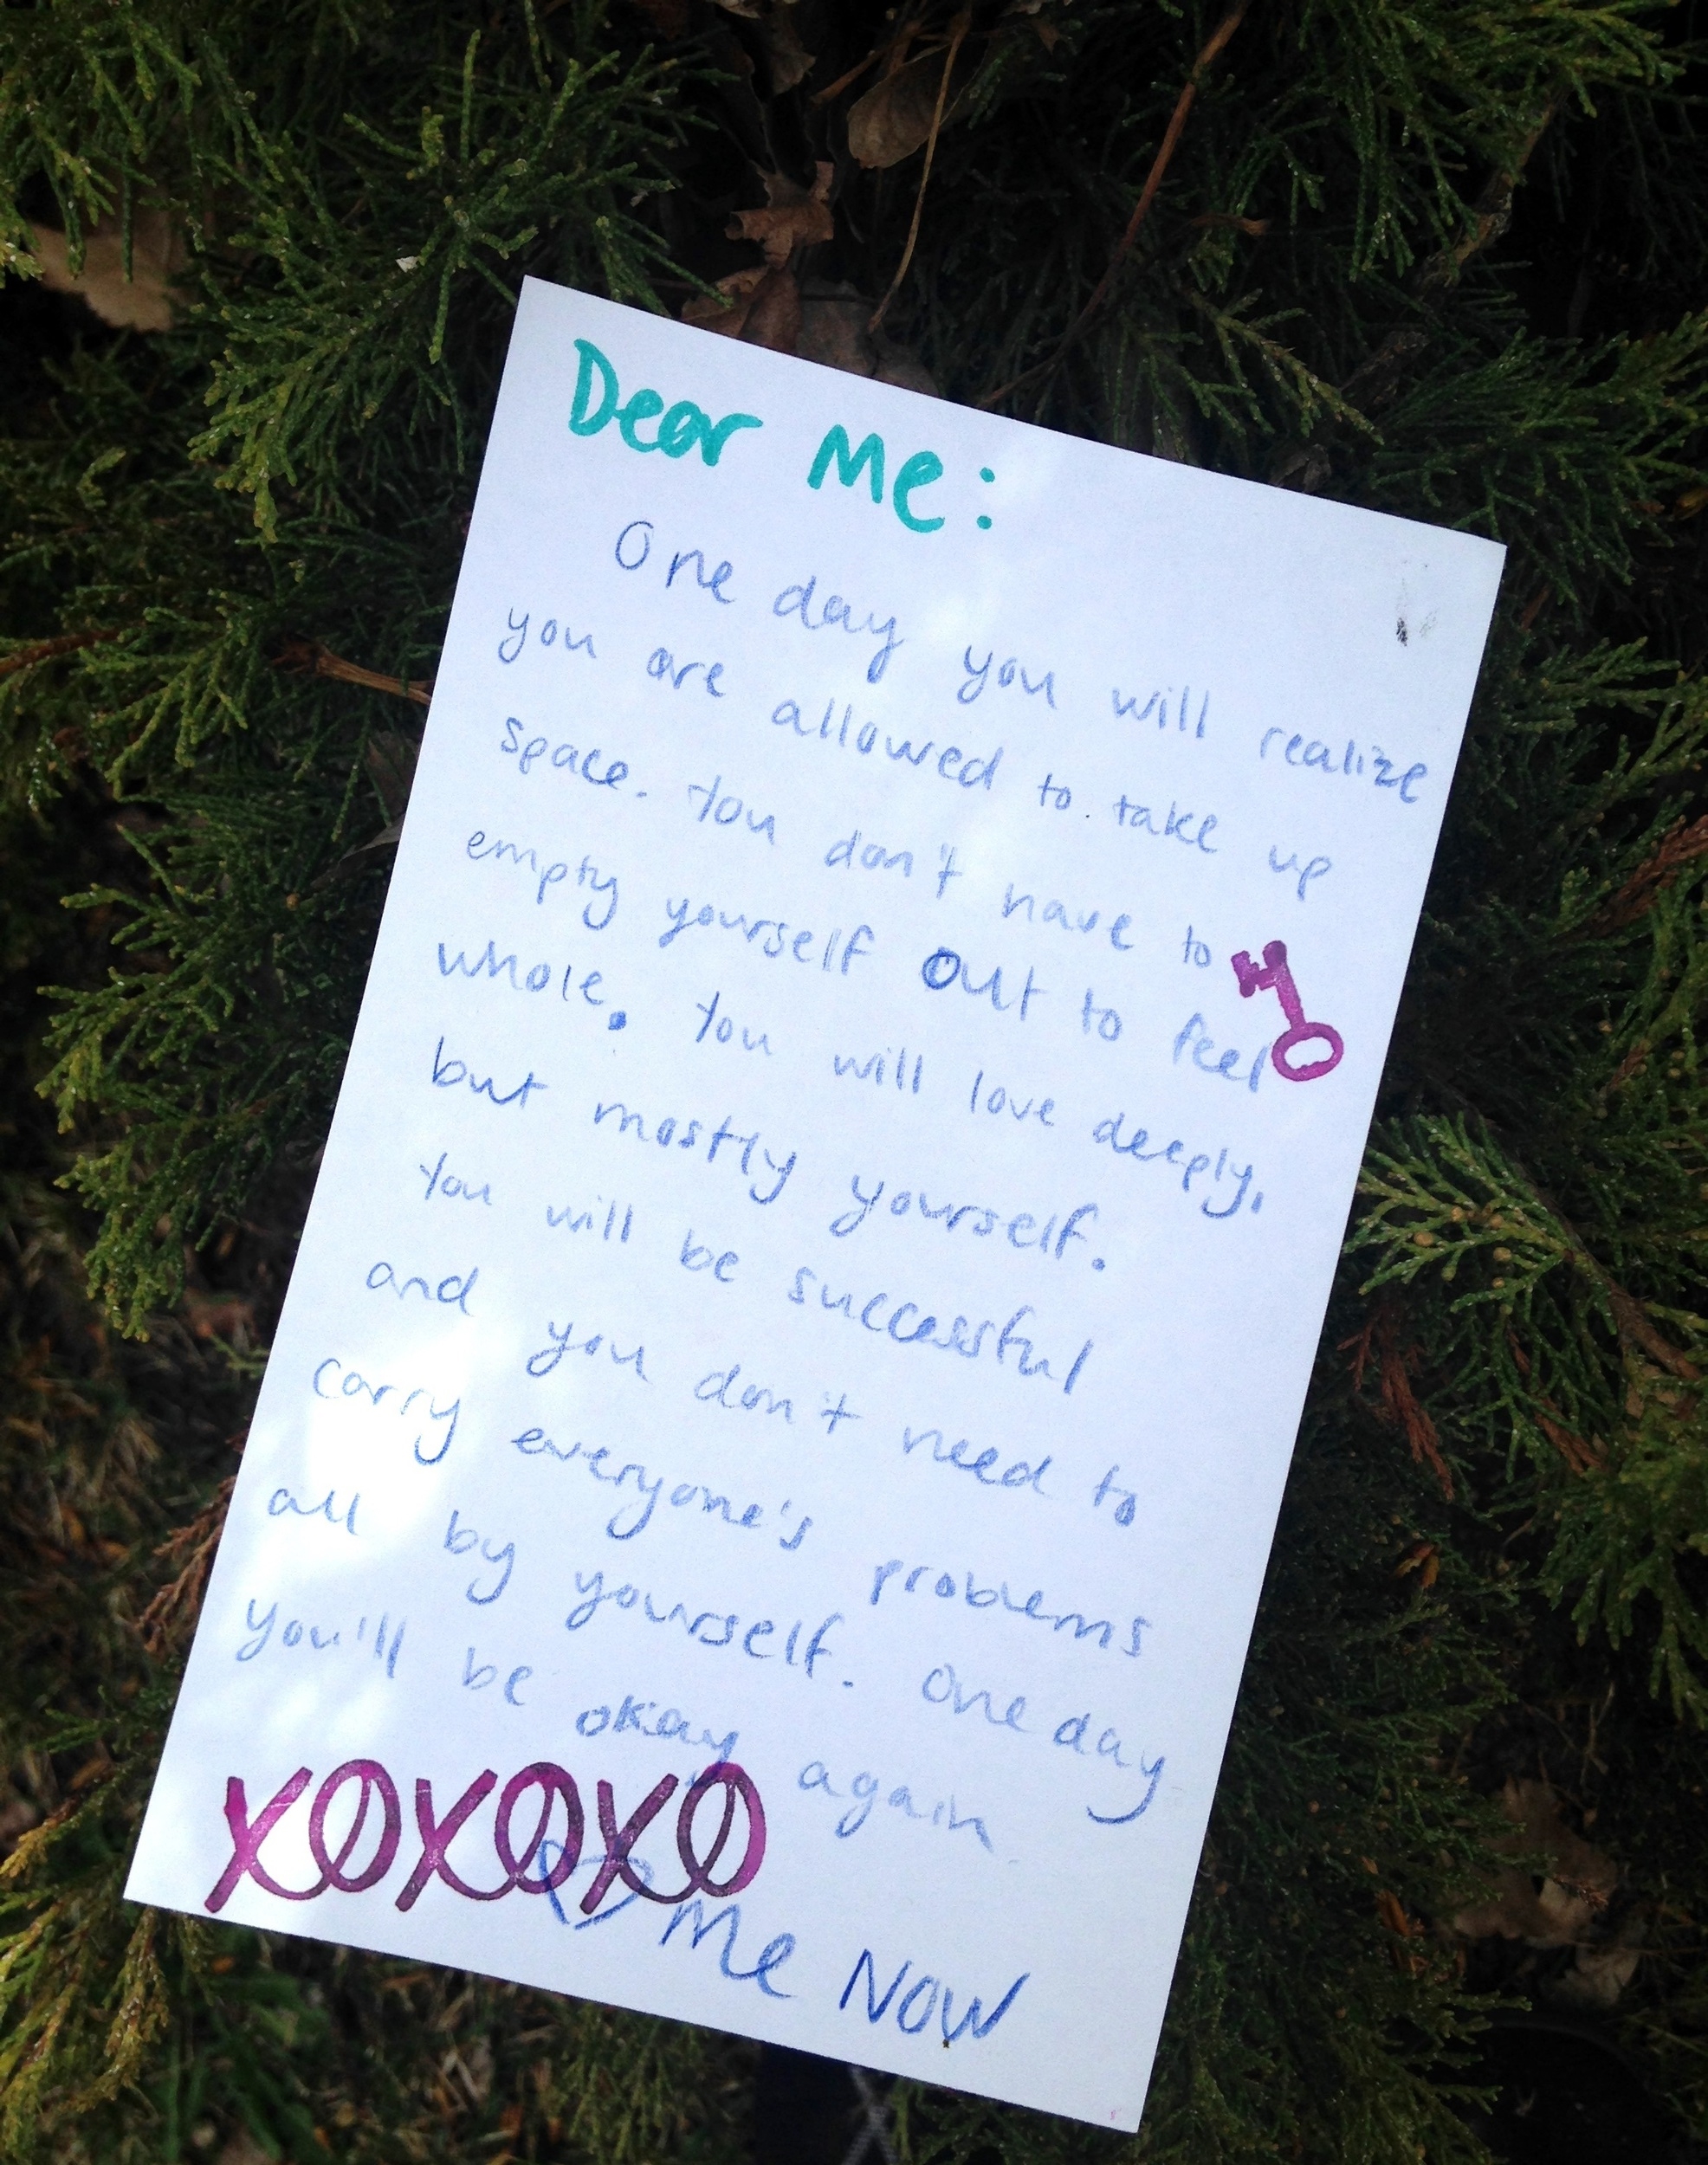 Dear Me:
One day you will realize
you are allowed to take up
space. You don't have to
empty yourself out to feel
whole. You will love deeply,
but mostly yourself.
You will be successful
and you don't need to
carry everyone's problems
all by yourself. One day
you'll be okay again
XOXOXO
Me Now